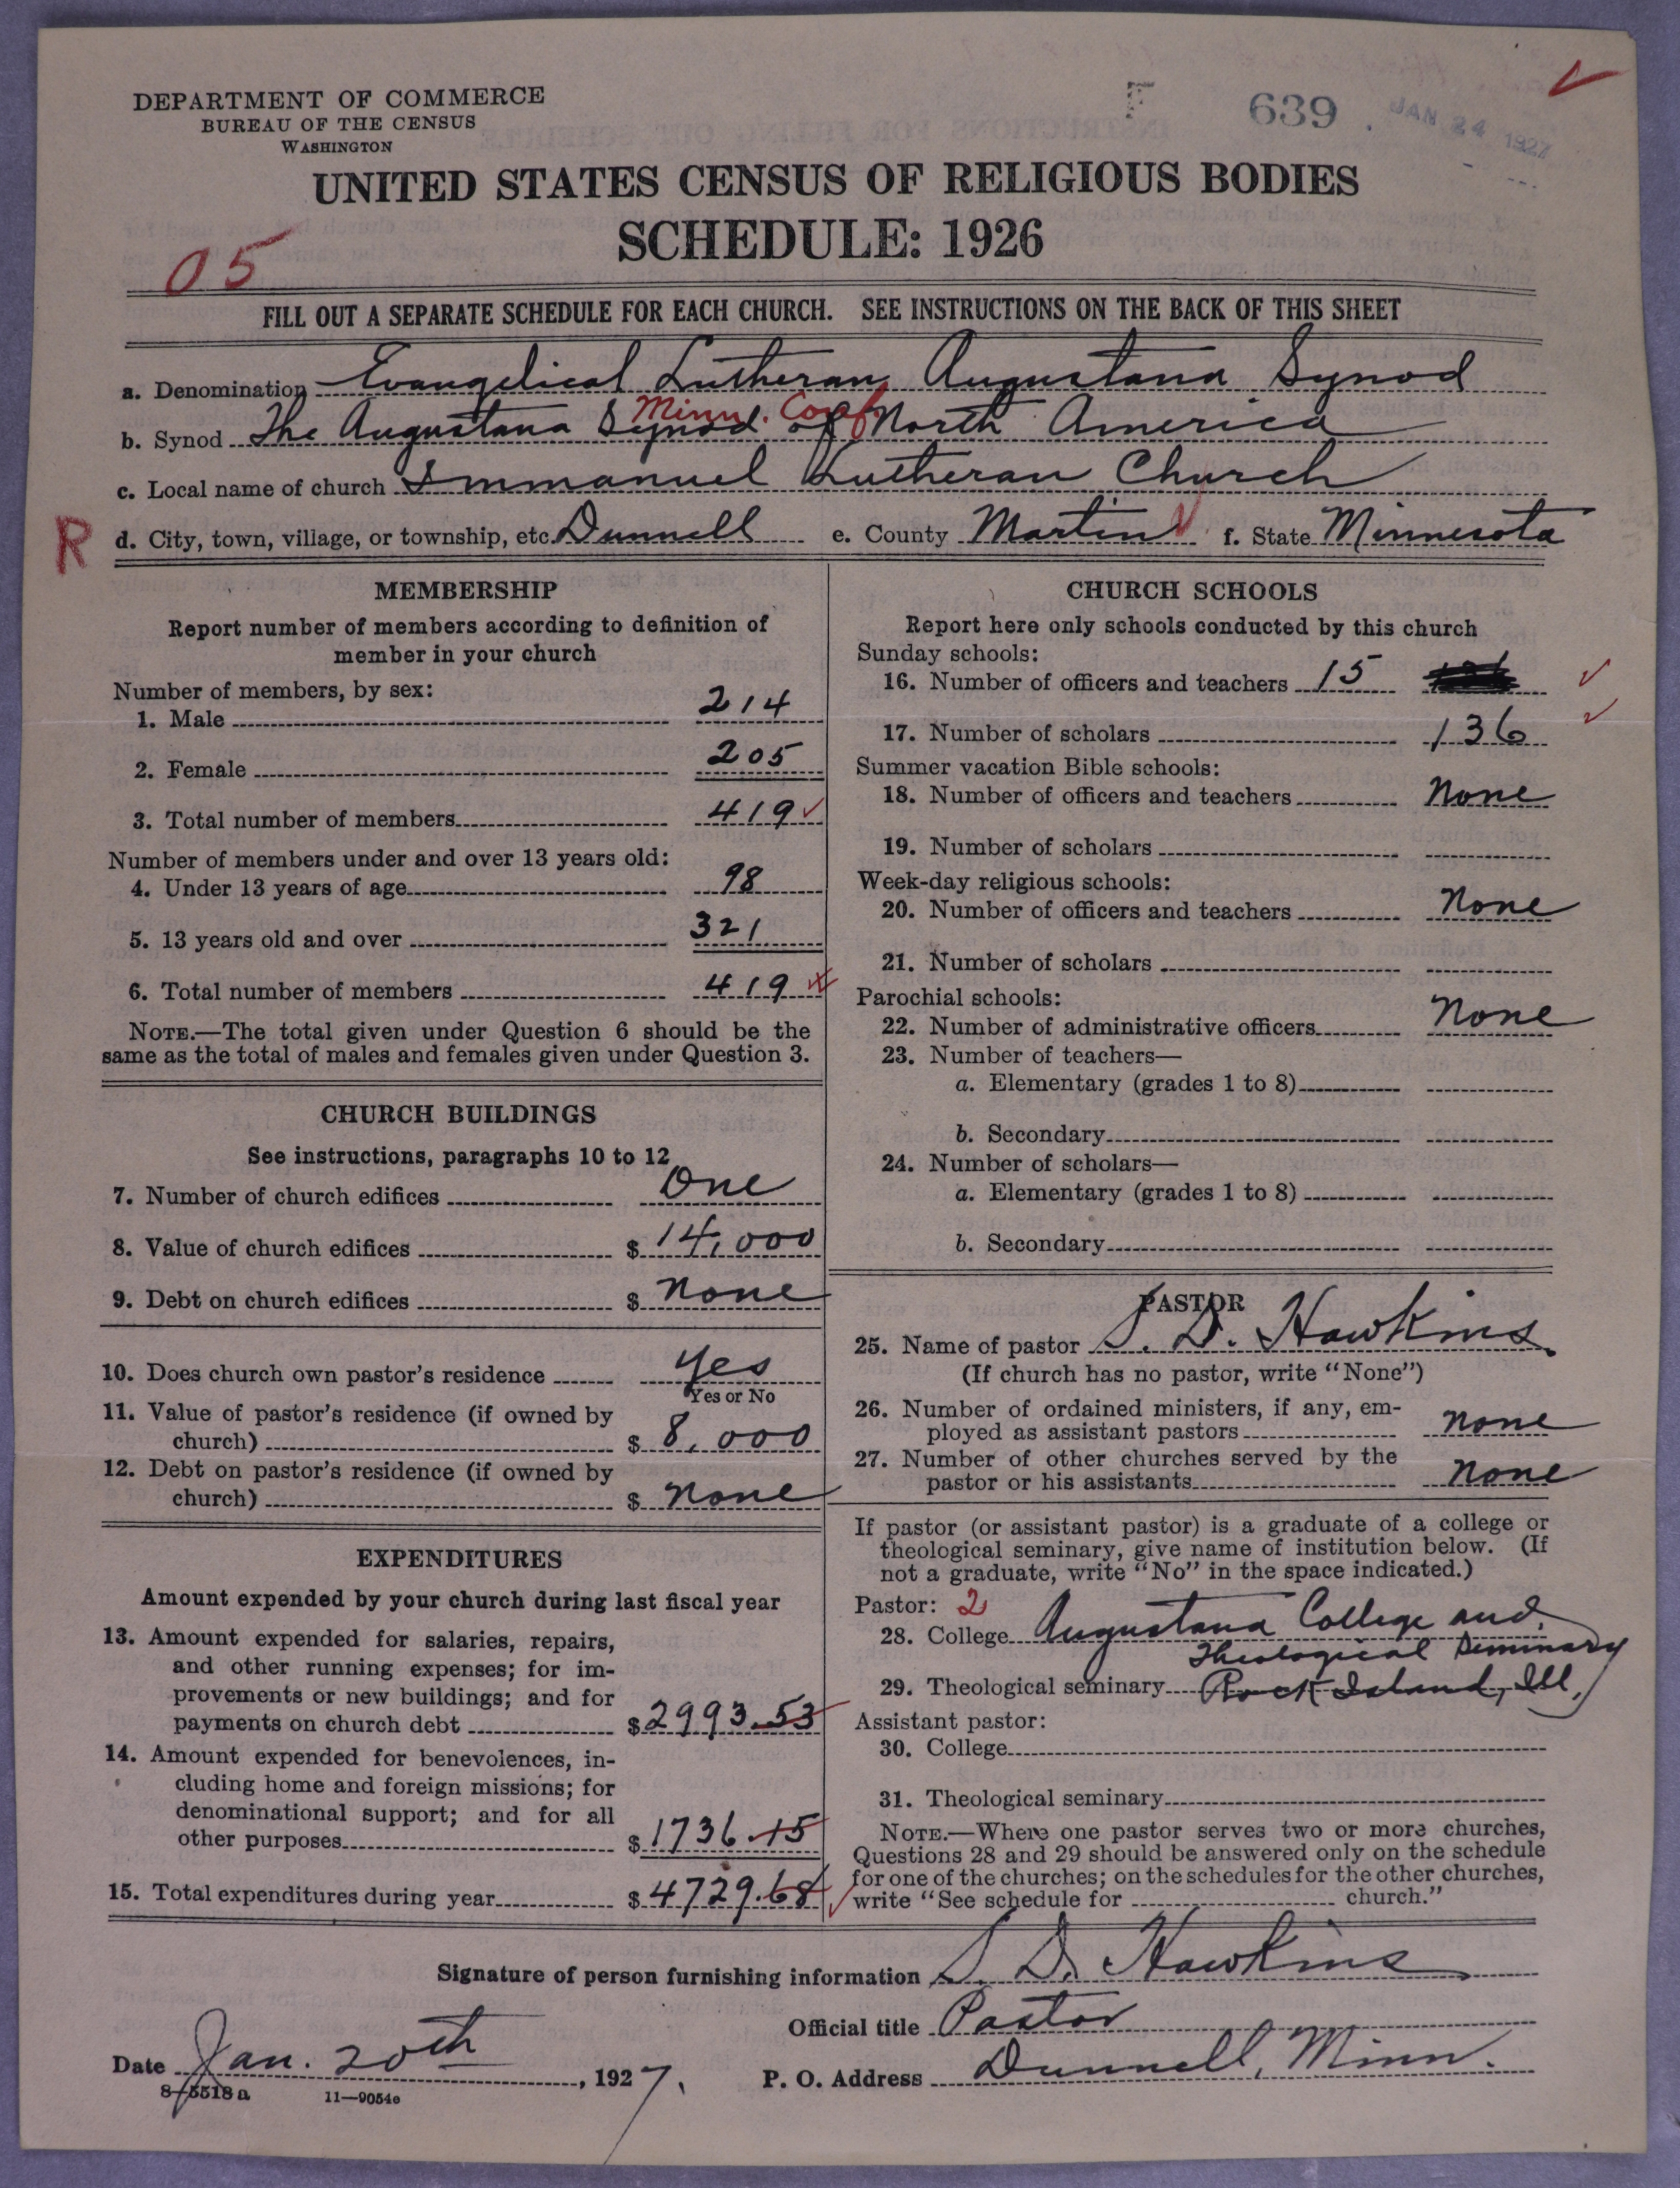 DEPARTMENT OF COMMERCE
BUREAU OF THE CENSUS
WASHINGTON
639
JAN 24 1927
UNITED STATES CENSUS OF RELIGIOUS BODIES
SCHEDULE: 1926
05
FILL OUT A SEPARATE SCHEDULE FOR EACH CHURCH. SEE INSTRUCTIONS ON THE BACK OF THIS SHEET
a. Denomination Evangelical Lutheran Augustana Synod
Minn. Conf.
b. Synod The Augustana Synod of North America
c. Local name of church Immanuel Lutheran Church
R
d. City, town, village, or township, etc. Dunnell e. County Martin f. State Minnesota
MEMBERSHIP
Report number of members according to definition of
member in your church
Number of members, by sex:
1. Male 214
2. Female 205
3. Total number of members 419
Number of members under and over 13 years old:
4. Under 13 years of age 98
5. 13 years old and over 321
6. Total number of members 419
NOTE.—The total given under Question 6 should be the
same as the total of males and females given under Question 3.
CHURCH BUILDINGS
See instructions, paragraphs 10 to 12
7. Number of church edifices One
8. Value of church edifices $ 14,000
9. Debt on church edifices $ None
10. Does church own pastor's residence Yes
Yes or No
11. Value of pastor's residence (if owned by
church) $ 8,000
12. Debt on pastor's residence (if owned by
church) $ None
EXPENDITURES
Amount expended by your church during last fiscal year
13. Amount expended for salaries, repairs,
and other running expenses; for im-
provements or new buildings; and for
payments on church debt $ 2993.53
14. Amount expended for benevolences, in-
cluding home and foreign missions; for
denominational support; and for all
other purposes $ 1736.15
15. Total expenditures during year $ 4729.68
CHURCH SCHOOLS
Report here only schools conducted by this church
Sunday schools:
16. Number of officers and teachers 15
17. Number of scholars 136
Summer vacation Bible schools:
18. Number of officers and teachers None
19. Number of scholars
Week-day religious schools:
20. Number of officers and teachers None
21. Number of scholars
Parochial schools:
22. Number of administrative officers None
23. Number of teachers—
a. Elementary (grades 1 to 8)
b. Secondary
24. Number of scholars—
a. Elementary (grades 1 to 8)
b. Secondary
PASTOR
25. Name of pastor S. D. Hawkins
(If church has no pastor, write "None")
26. Number of ordained ministers, if any, em-
ployed as assistant pastors None
27. Number of other churches served by the
pastor or his assistants None
If pastor (or assistant pastor) is a graduate of a college or
theological seminary, give name of institution below. (If
not a graduate, write "No" in the space indicated.)
Pastor: 2
28. College Augustana College and
Theological Seminary
29. Theological seminary Rock Island, Ill.
Assistant pastor:
30. College
31. Theological seminary
NOTE.—Where one pastor serves two or more churches,
Questions 28 and 29 should be answered only on the schedule
for one of the churches; on the schedules for the other churches,
write "See schedule for church."
Signature of person furnishing information S. D. Hawkins
Official title Pastor
Date Jan. 20th, 1927. P. O. Address Dunnell, Minn.
8-5518a 11—9054e